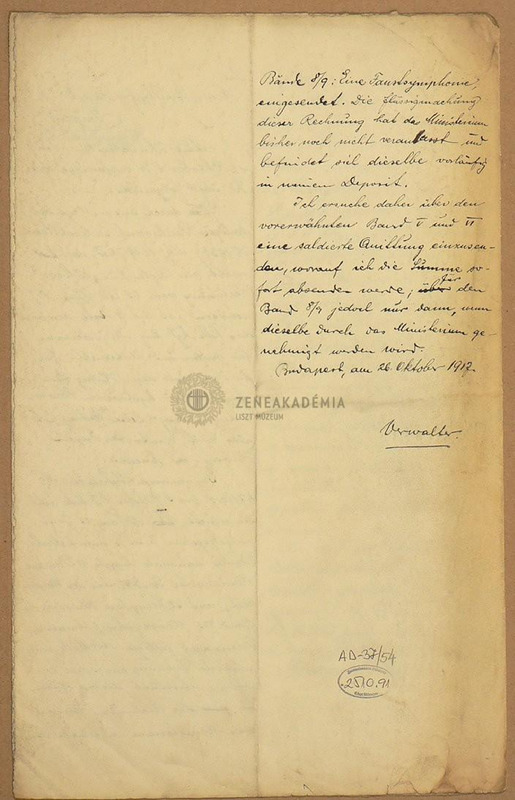 Bände 8/9: Eine Faustsymphonie,
eingesendet. Die Flüssigmachung
dieser Rechnung hat das Ministerium
bisher noch nicht veranlasst und
befindet sich dieselbe vorläufig
in meinen Deposit.
Ich ersuche daher über den
vorerwähnten Band V und VI
eine saldierte Quittung einzusen-
den, worauf ich die Summe so-
fort absenden werde; über für den
Band 8/9 jedoch nur dann, wenn
dieselbe durch das Ministerium ge-
nehmigt werden wird.
Budapest, am 26 Oktober 1917.
Verwalter.
ZENEAKADÉMIA
LISZT MÚZEUM
AD-37/54
25 10. 91